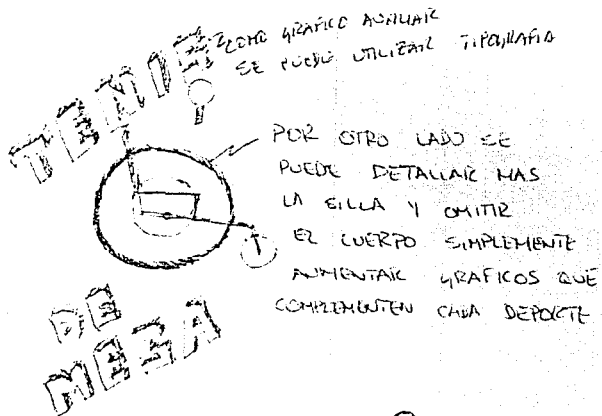 TENIS
COMO GRAFICO AUXILIAR
SE PUEDE UTILIZAR TIPOGRAFIA
POR OTRO LADO SE
PUEDE DETALLAR MAS
LA SILLA Y OMITIR
EL CUERPO SIMPLEMENTE
AUMENTAR GRAFICOS QUE
COMPLEMENTEN CADA DEPORTE
DE
MESA